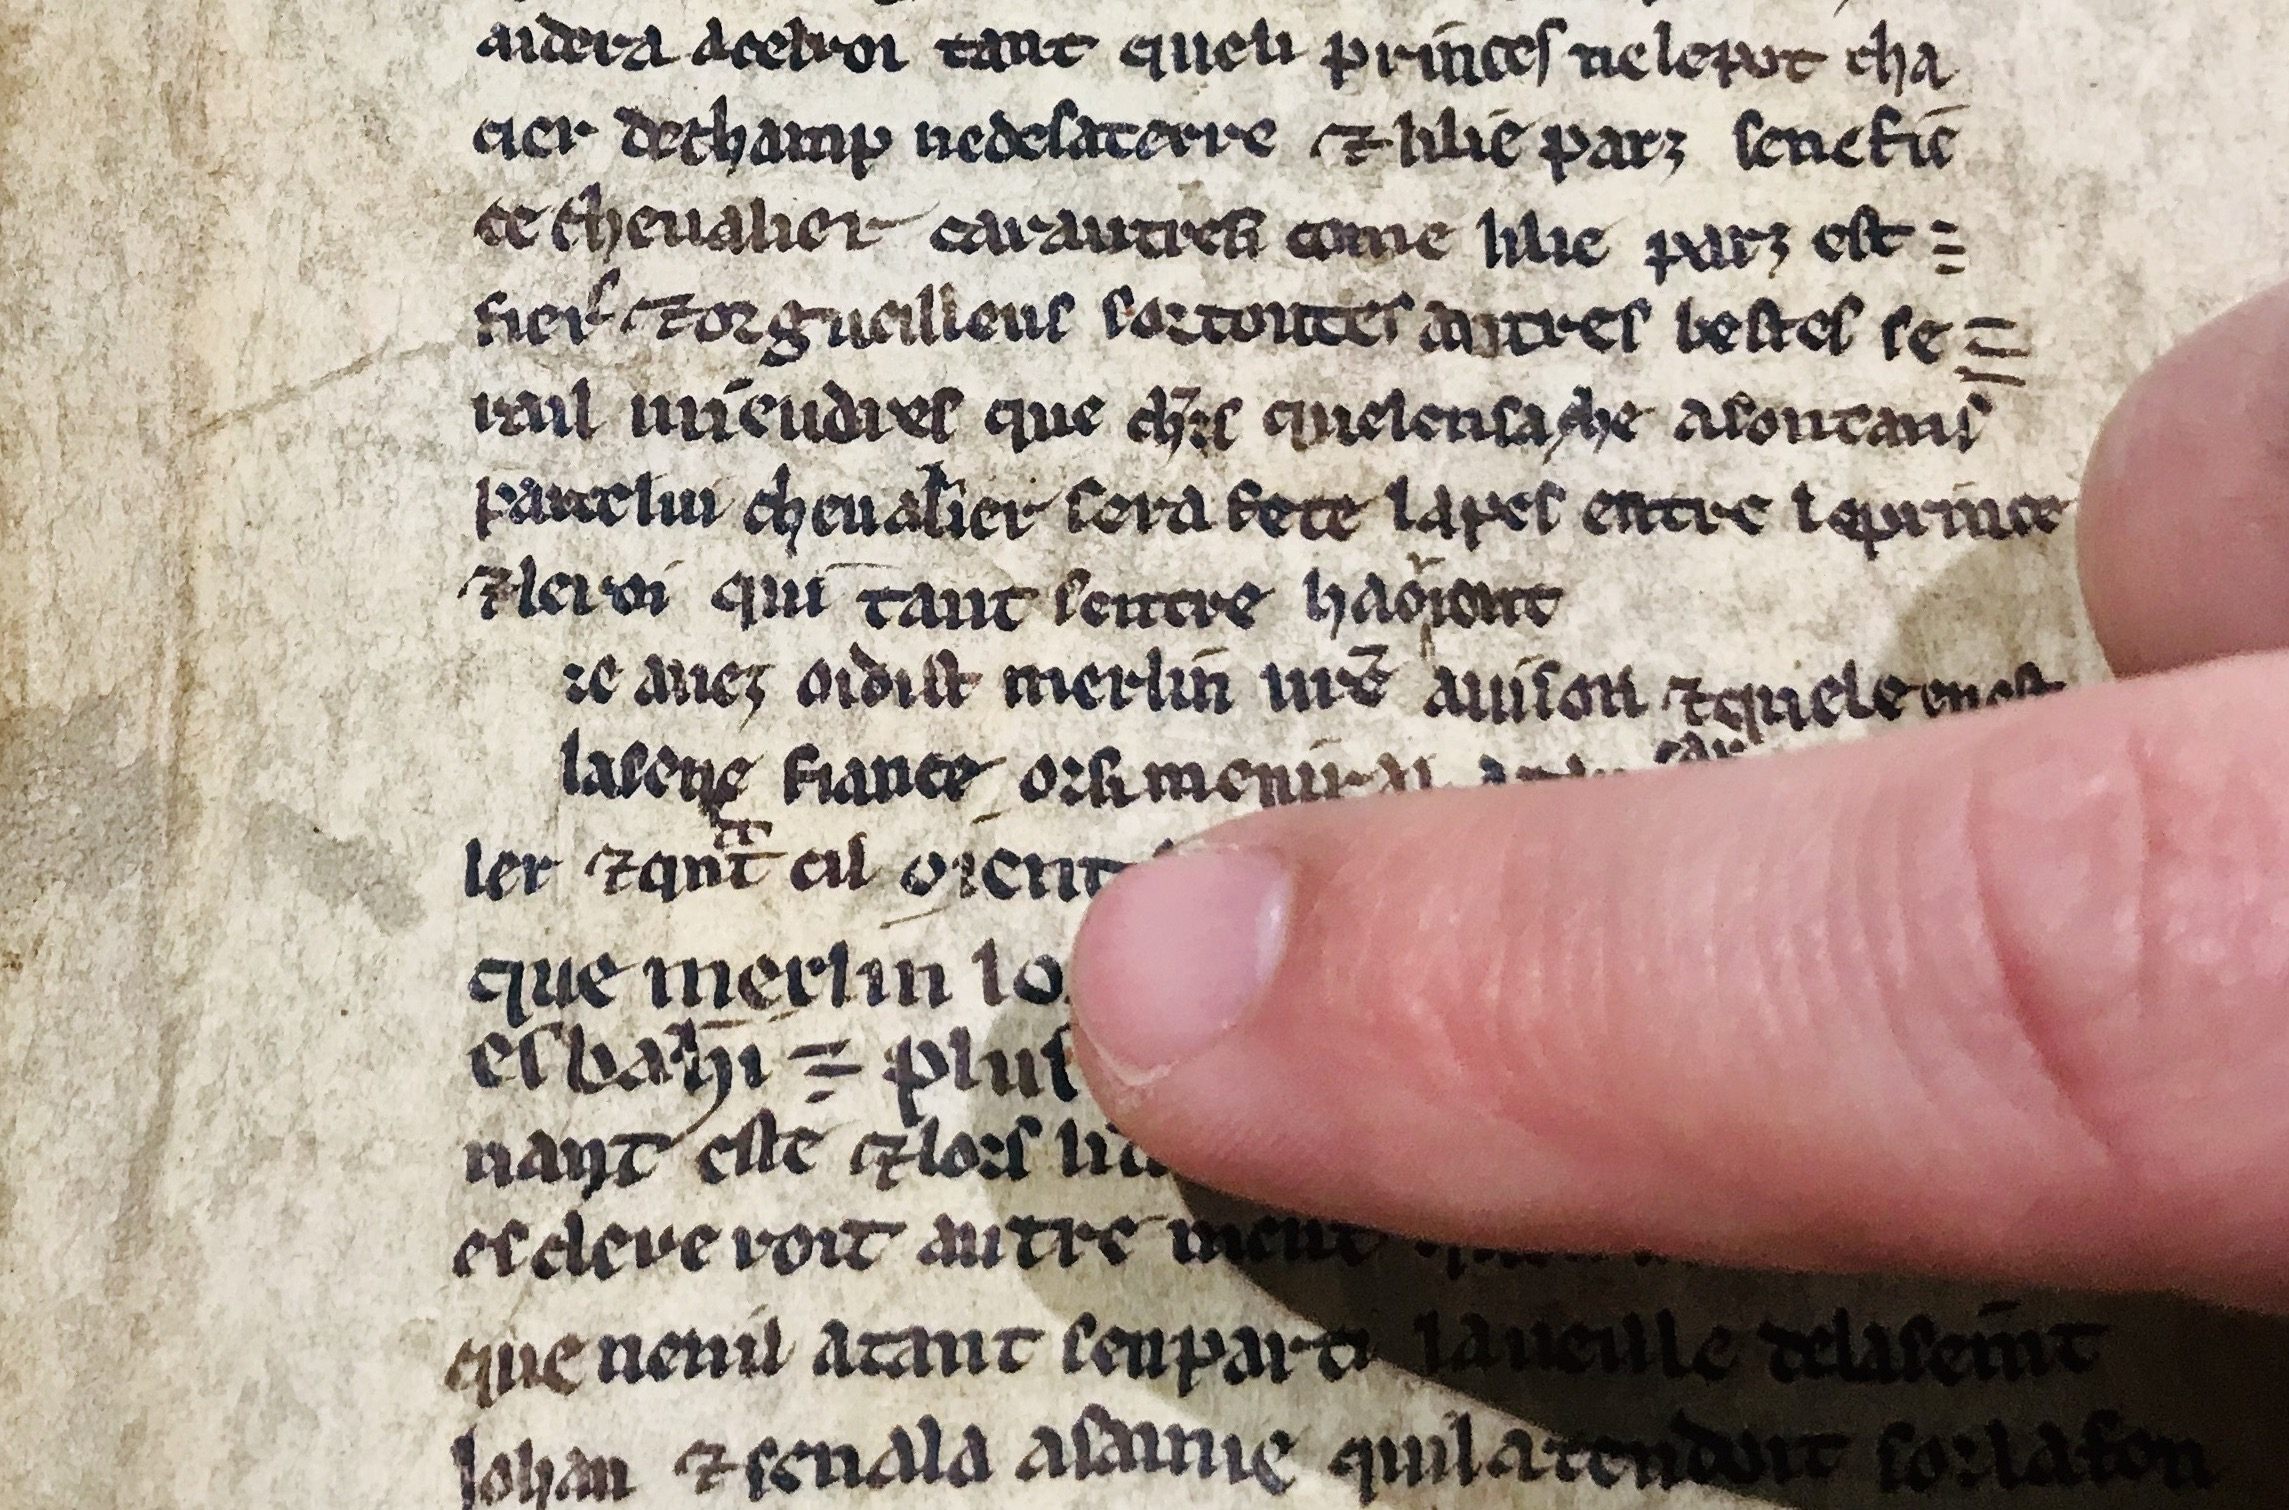 aidera acelroi tant queli princes nelepot cha
cier dechamp nedelaterre ⁊ lilie parz senefie
ce chevalier carautresi come lilie parz est =
fiers ⁊orgueilleus sortoutes autres bestes se
rail mieudres que ch'rs quelensache asontans
parcelui chevalier sera fete lapes entre leprince
⁊leroi qui tant sentre haoient
re avez oidist merlin vrē avision ⁊quele enest
lasene fiance orsi
ler ⁊qnt cil oient
que merlin lo
esbahi = plus
nant este ⁊lors li
esclereroit autre ment
que nenil atant senparti laveille delaseint
Johan ⁊senala asamie quilatendoit sorlafon